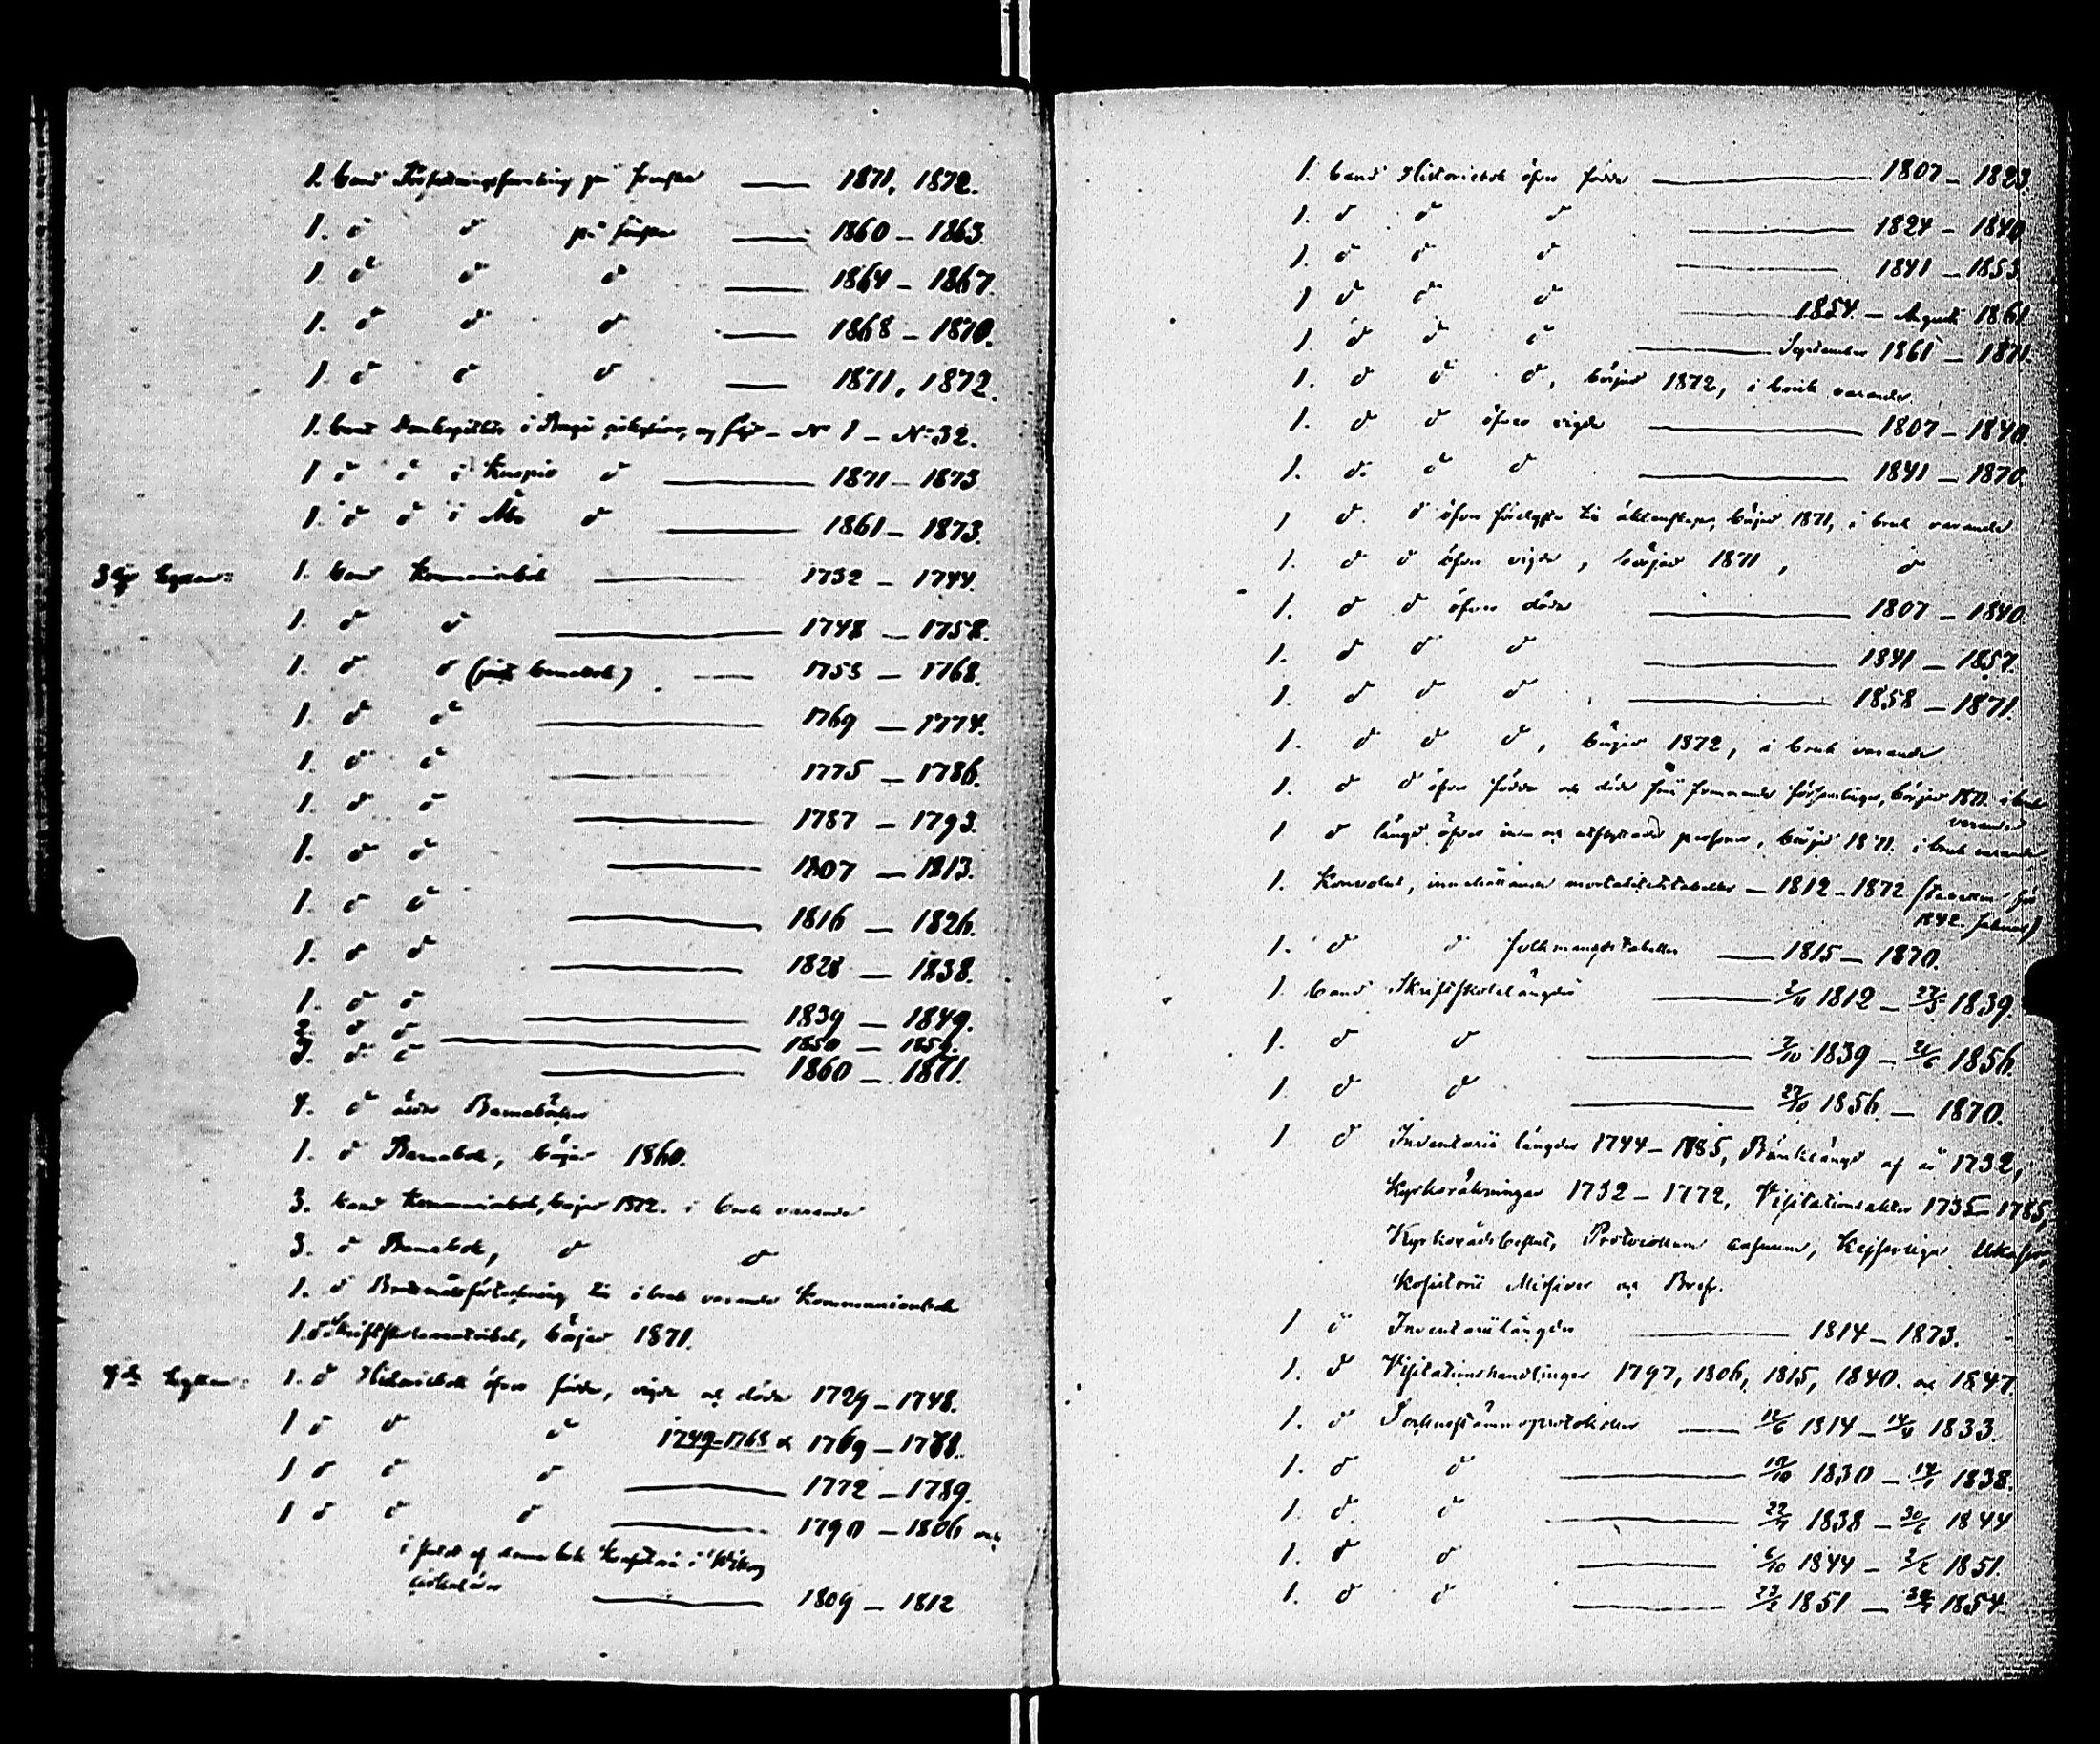 1. band Författningssamling på svenska — 1871, 1872.
1. d:o d:o på finska — 1860 – 1863.
1. d:o d:o d:o — 1864 – 1867.
1. d:o d:o d:o — 1868 – 1870.
1. d:o d:o d:o — 1871, 1872.
1. band Domkapitlets i Borgå cirkulär, ny följd – N:o 1 – N:o 32.
1 d:o d:o i Kuopio d:o — 1871 – 1873
1. d:o d:o i Åbo d:o — 1861 – 1873.
3dje hyllan: 1. band Kommunionbok — 1732 – 1744.
1. d:o d:o — 1748 – 1758.
1. d:o d:o (jemte barnabok) — 1753 – 1768.
1. d:o d:o — 1769 – 1774.
1. d:o d:o — 1775 – 1786.
1. d:o d:o — 1787 – 1793.
1. d:o d:o — 1807 – 1813.
1. d:o d:o — 1816 – 1826.
1. d:o d:o — 1828 – 1838.
1. d:o d:o — 1839 – 1849.
2. d:o d:o — 1850 – 1859.
3. d:o d:o — 1860 – 1871.
4. d:o äldre Barnaböcker
1. d:o Barnabok, börjar 1860.
3. band Kommunionbok, börjar 1872. i bruk varande
3. d:o Barnabok, d:o d:o
1. d:o Bostadsförteckning till i bruk varande Kommunionbok
1. d:o Skriftskolematrikel, börjar 1871.
4de hyllan: 1. d:o Historiebok öfver födde, vigde och döde 1729 – 1748.
1 d:o d:o d:o 1749–1768 & 1769 – 1788.
1 d:o d:o d:o — 1772 – 1789.
1 d:o d:o d:o — 1790 – 1806 och
i slutet af denna bok Konsistorii i Wiborg
cirkulärer — 1809 – 1812
1. band Historiebok öfver födde — 1807 – 1823.
1. d:o d:o d:o — 1824 – 1840
1. d:o d:o d:o — 1841 – 1853
1 d:o d:o d:o — 1854 – Augusti 1861
1. d:o d:o d:o — September 1861 – 1871.
1. d:o d:o d:o, börjar 1872, i bruk varande.
1. d:o d:o öfver vigde — 1807 – 1840.
1. d:o d:o d:o — 1841 – 1870.
1 d:o d:o öfver förelyste till äktenskap, börjar 1871, i bruk varande
1. d:o d:o öfver vigde, börjar 1871, d:o
1. d:o d:o öfver döde — 1807 – 1840
1. d:o d:o d:o — 1841 – 1857.
1. d:o d:o d:o — 1858 – 1871.
1. d:o d:o d:o, börjar 1872, i bruk varande
1. d:o d:o öfver födde och döde från främmande församlingar, börjar 1871. i bruk
varande
1 d:o längd öfver in- och utflyttade personer, börjar 1871. i bruk varande
1. Konvolut, innehållande mortalitetstabeller – 1812 – 1872 (tabellen för
1842 saknas)
1. d:o d:o folkmängdstabeller — 1815 – 1870.
1. band Skriftskolelängder — 2/11 1812 – 27/5 1839.
1. d:o d:o — 7/10 1839 – 26/6 1856.
1. d:o d:o — 27/10 1856 – 1870.
1. d:o Inventarii längder 1744 – 1785, Bänklängd af år 1732,
Kyrkoräkningar 1732 – 1772, Visitationsakter 1735 – 1785,
Kyrkorådsbeslut, Protocollum casuum, Kejserliga Ukaser,
Kosistorii Missiver och Bref.
1 d:o Inventariilängder — 1814 – 1873.
1. d:o Visitationshandlingar 1797, 1806, 1815, 1840. och 1847.
1. d:o Sockenstämmoprotokoller — 12/6 1814 – 14/11 1833.
1. d:o d:o — 17/10 1830 – 14/1 1838.
1. d:o d:o — 22/4 1838 – 30/6 1844
1. d:o d:o — 6/10 1844 – 2/2 1851.
1. d:o d:o — 23/2 1851 – 30/4 1854.